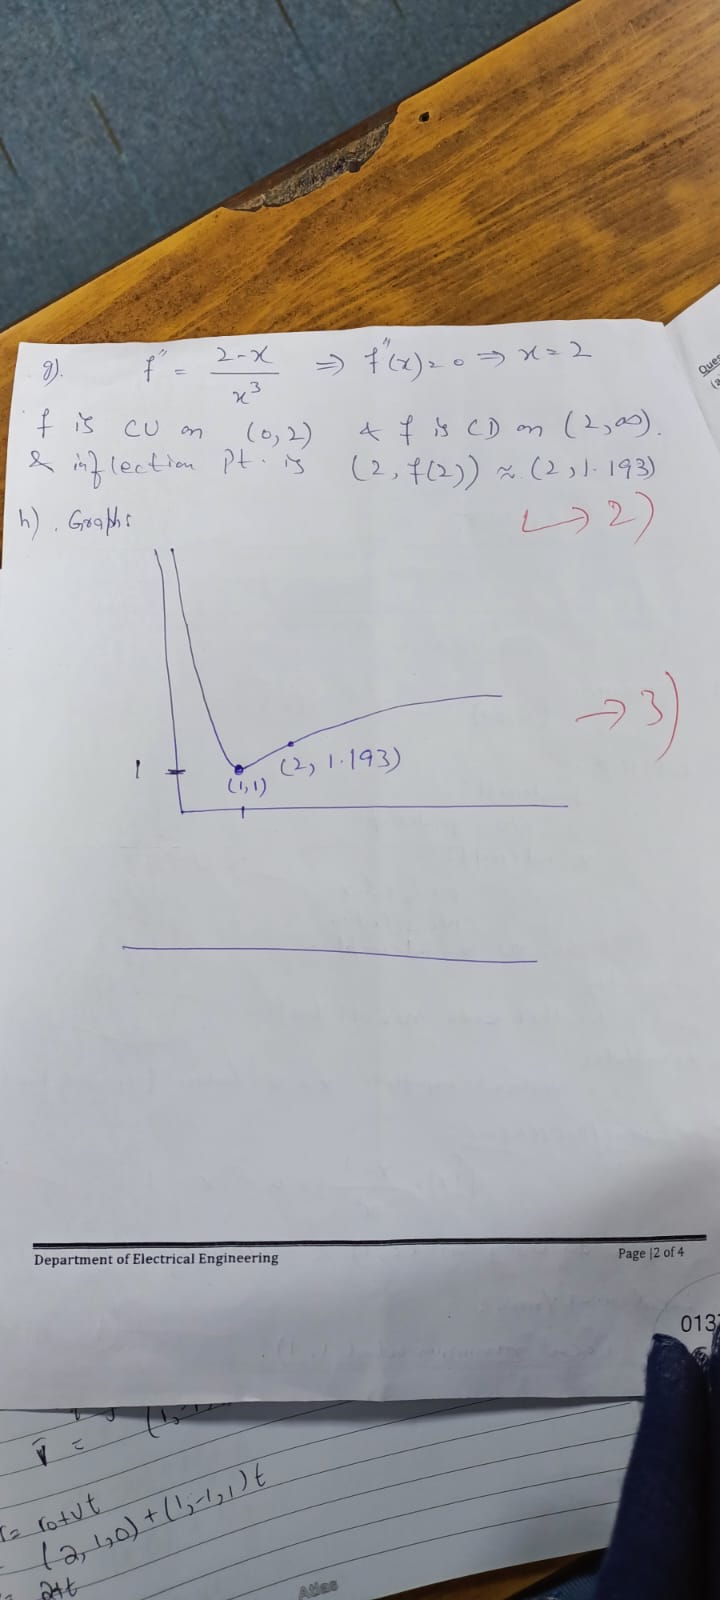 g). f″ = (2-x)/x³ ⇒ f″(x)=0 ⇒ x=2
f is CU on (0,2) & f is CD on (2,∞).
& inflection Pt. is (2, f(2)) ≈ (2, 1.193)
→ 2)
h). Graphs
→ 3)
1
(2, 1.193)
(1,1)
Department of Electrical Engineering
Page |2 of 4
Ques
(a
013
(1,-1
= r₀+vt
(2,1,0)+(1,-1,1)t
2+t
Atlas